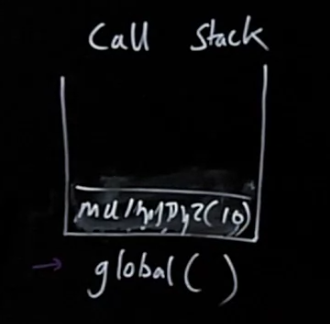 Call Stack
multiply2(10)
global()